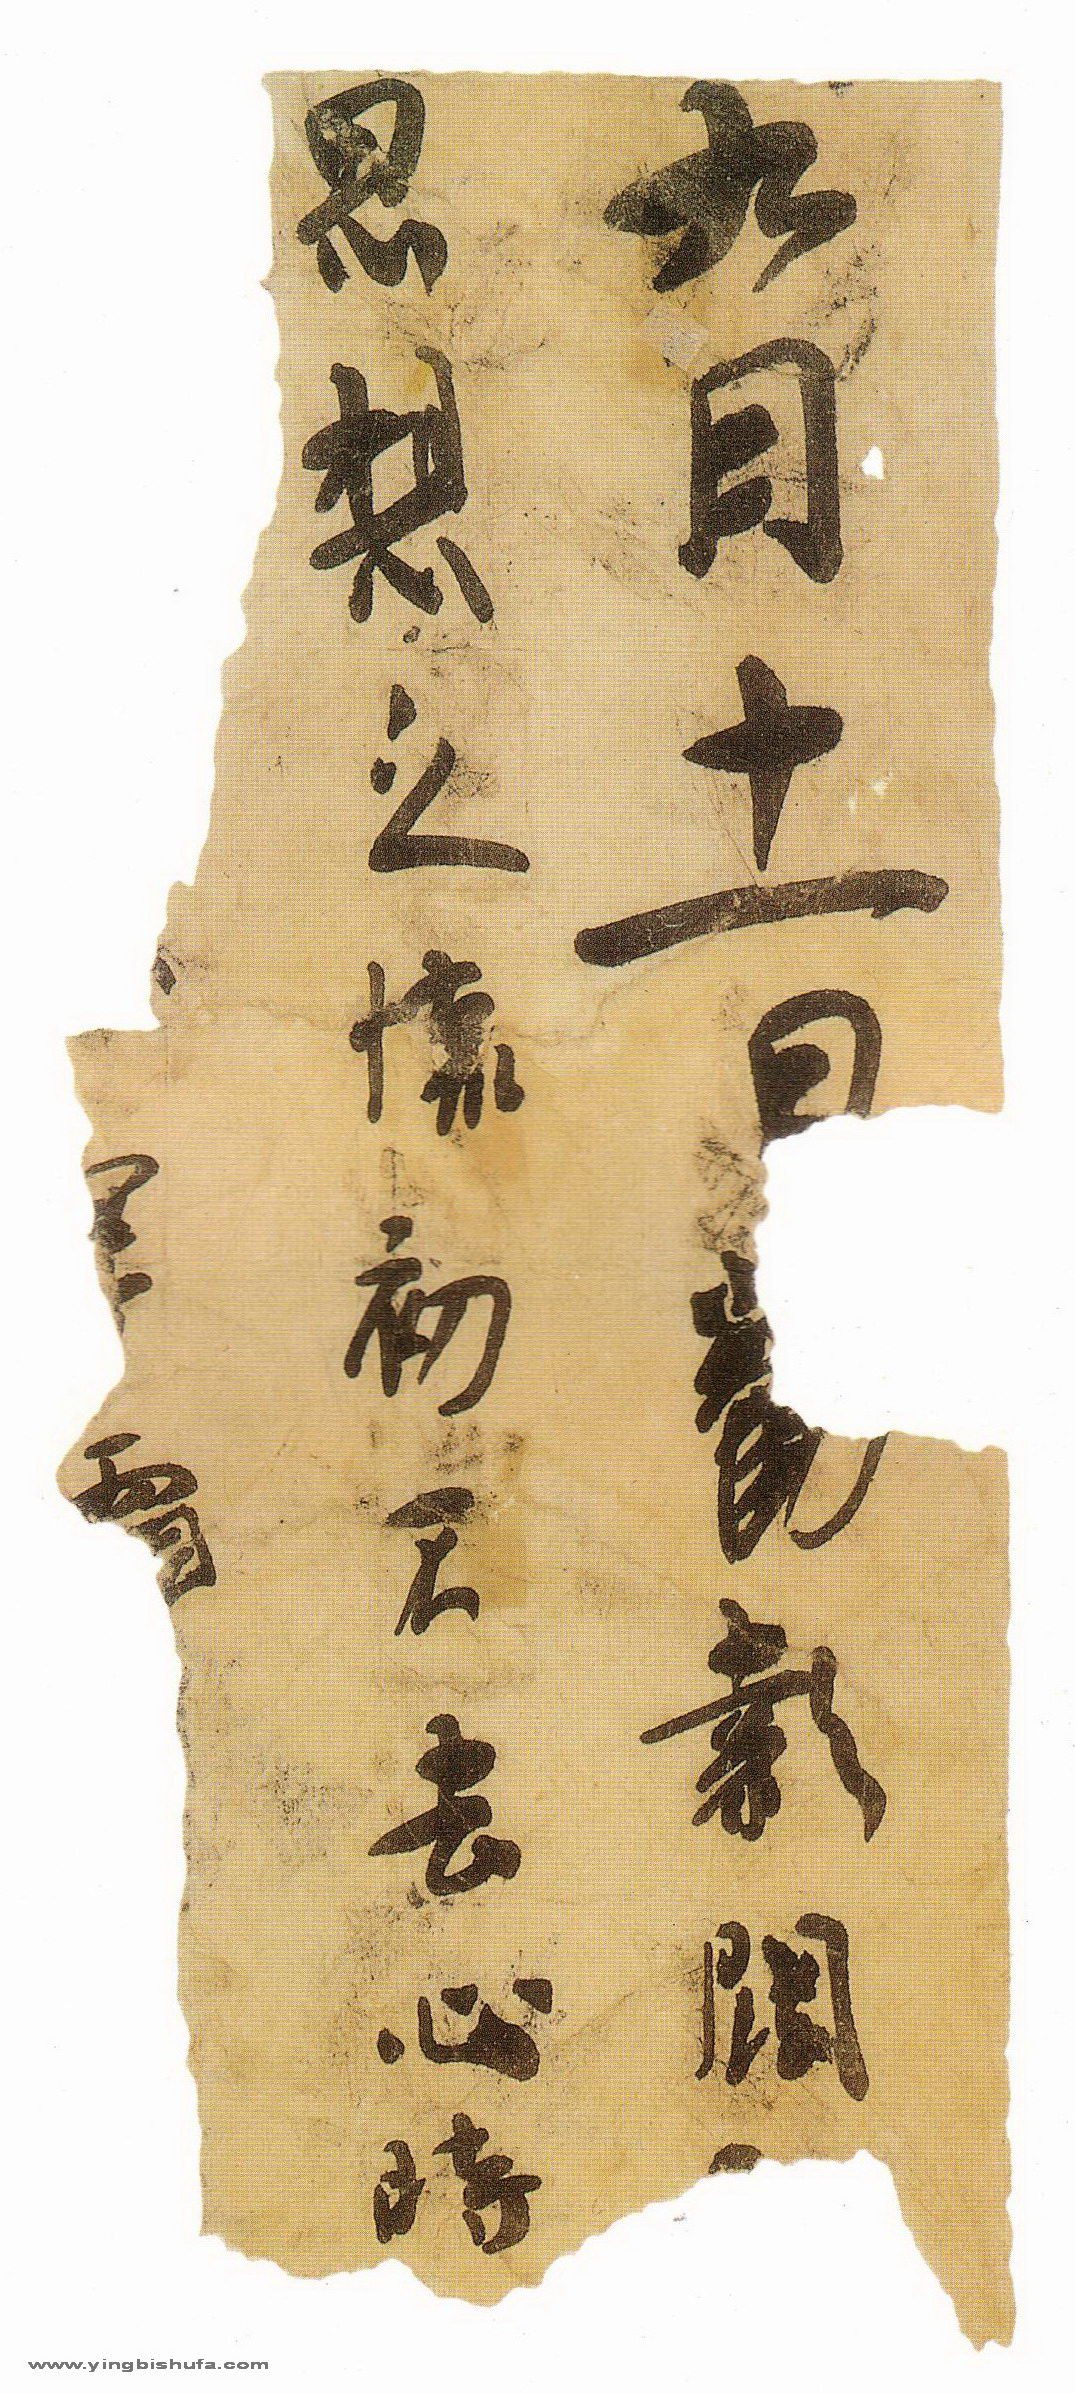 六月十一日 數闊
思想之懷初不去心時
www.yingbishufa.com